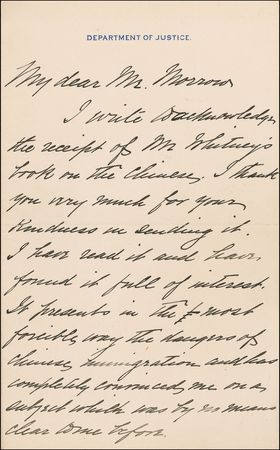 DEPARTMENT OF JUSTICE.
My dear Mr. Morrow
I write to acknowledge
the receipt of Mr Whitney's
book on the Chinese. I thank
you very much for your
kindness in sending it.
I have read it and have
found it full of interest.
It presents in the most
forcible way the dangers of
Chinese immigration and has
completely convinced me on a
subject which was by no means
clear to me before.